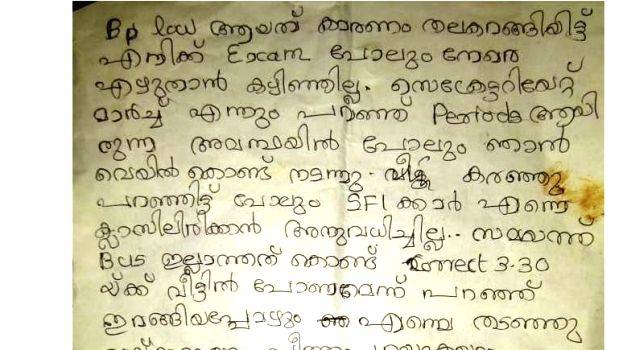 Bp low ആയത് കാരണം തലകറങ്ങിയിട്ട്
എനിക്ക് Exam പോലും നേരെ
എഴുതാൻ കഴിഞ്ഞില്ല. സെക്രേട്ടറിയേറ്റ്
മാർച്ച് എന്നും പറഞ്ഞ് Periods ആയി
രുന്ന അവസ്ഥയിൽ പോലും ഞാൻ
വെയിൽ കൊണ്ട് നടന്നു. കരഞ്ഞു
പറഞ്ഞിട്ട് പോലും SFI ക്കാർ എന്നെ
ക്ലാസിലിരിക്കാൻ അനുവദിച്ചില്ല.. സമയത്ത്
Bus ഇല്ലാത്തത് കൊണ്ട് correct 3.30
യ്ക്ക് വീട്ടിൽ പോണമെന്ന് പറഞ്ഞ്
ഇറങ്ങിയപ്പോഴും എന്നെ തടഞ്ഞു